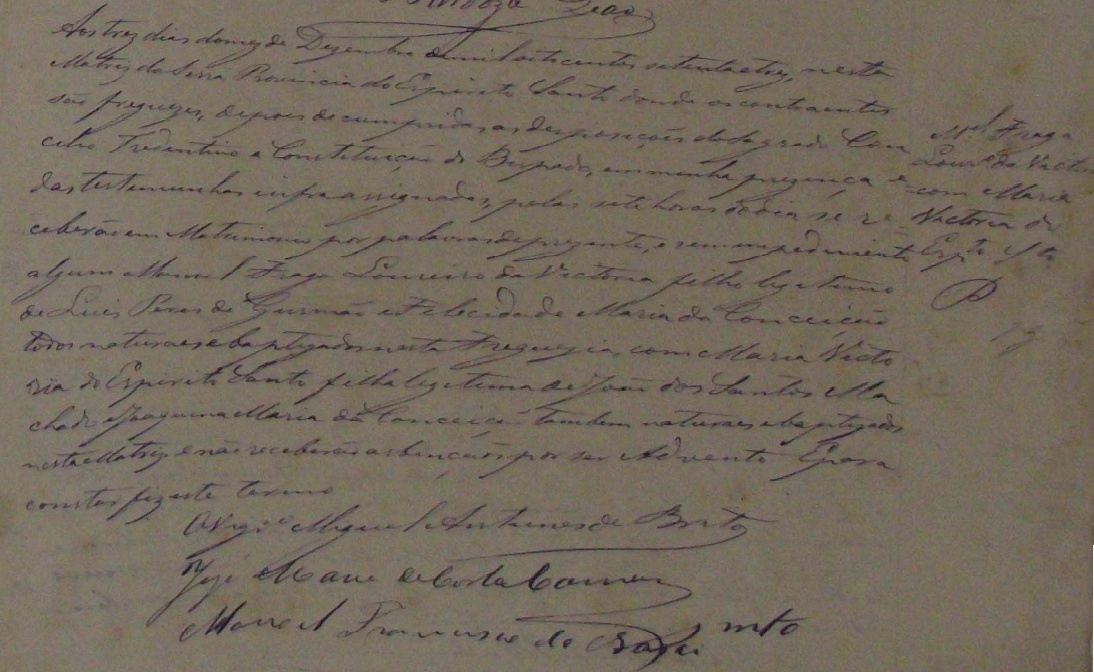 Aos trez dias do mez de Dezembro de mil oito centos setenta e trez, nesta
Matriz da Serra Provincia do Espirito Santo donde os contraentes
são freguezes, depois de cumpridas as desposições do Sagrado Con
cilio Tredentino e Constituição do Bispado, em minha prezença e
das testemunhas infra assignadas, pelas sete horas do dia se re
ceberão em Matrimonio por palavras de prezente, e sem impedimento
algum Manoel Fraga Loureiro da Victoria filho legitimo
de Luis Peres de Gusmão e Felecidade Maria da Conceição
todos naturaes e baptizados nesta Freguezia, com Maria Victo
ria do Espirito Santo filha legitima de João dos Santos Ma
chado e Joaquina Maria da Conceição tambem naturaes e baptizados
nesta Matriz e não receberão as bençãos por ser Advento E para
constar fiz este termo
O Vigrº Miguel Antunes de Brito
José Maria da Costa
Manoel Francisco do
Mel Fraga
Lourº da Victoria
com Maria
Victoria do
Espto Sto